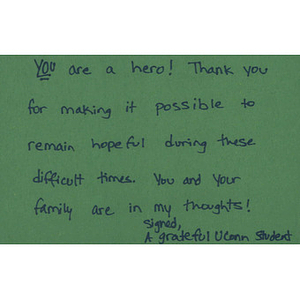 You are a hero! Thank you
for making it possible to
remain hopeful during these
difficult times. You and your
family are in my thoughts!
signed,
A grateful UConn Student